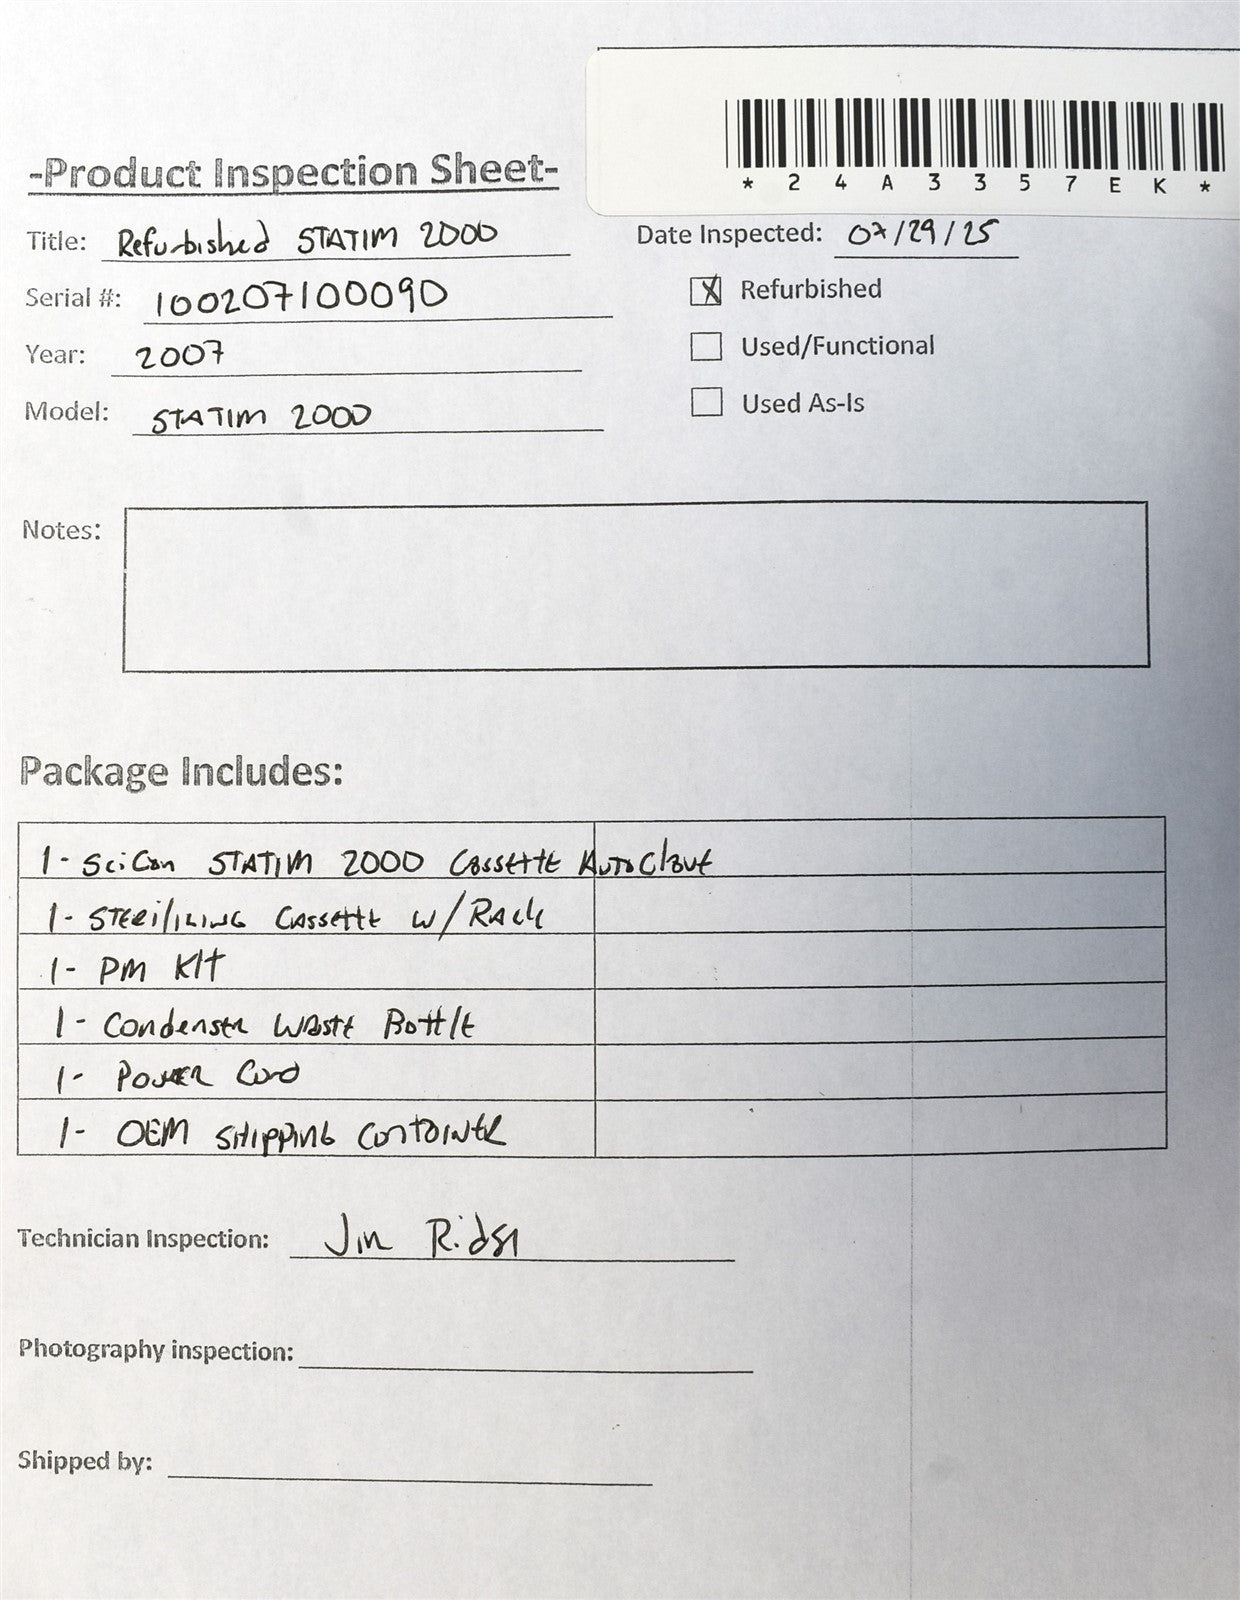 *24A3357EK*
-Product Inspection Sheet-
Title: Refurbished STATIM 2000
Date Inspected: 07/29/25
Serial #: 100207100090
X Refurbished
Year: 2007
Used/Functional
Model: STATIM 2000
Used As-Is
Notes:
Package Includes:
1- SciCan STATIM 2000 Cassette AutoClave
1- STERilIZING CASSETTE W/RACK
1- PM KIT
1- Condenser Waste Bottle
1- POWER Cord
1- OEM SHIPPING CONTAINER
Technician Inspection: Jim
Photography inspection:
Shipped by: